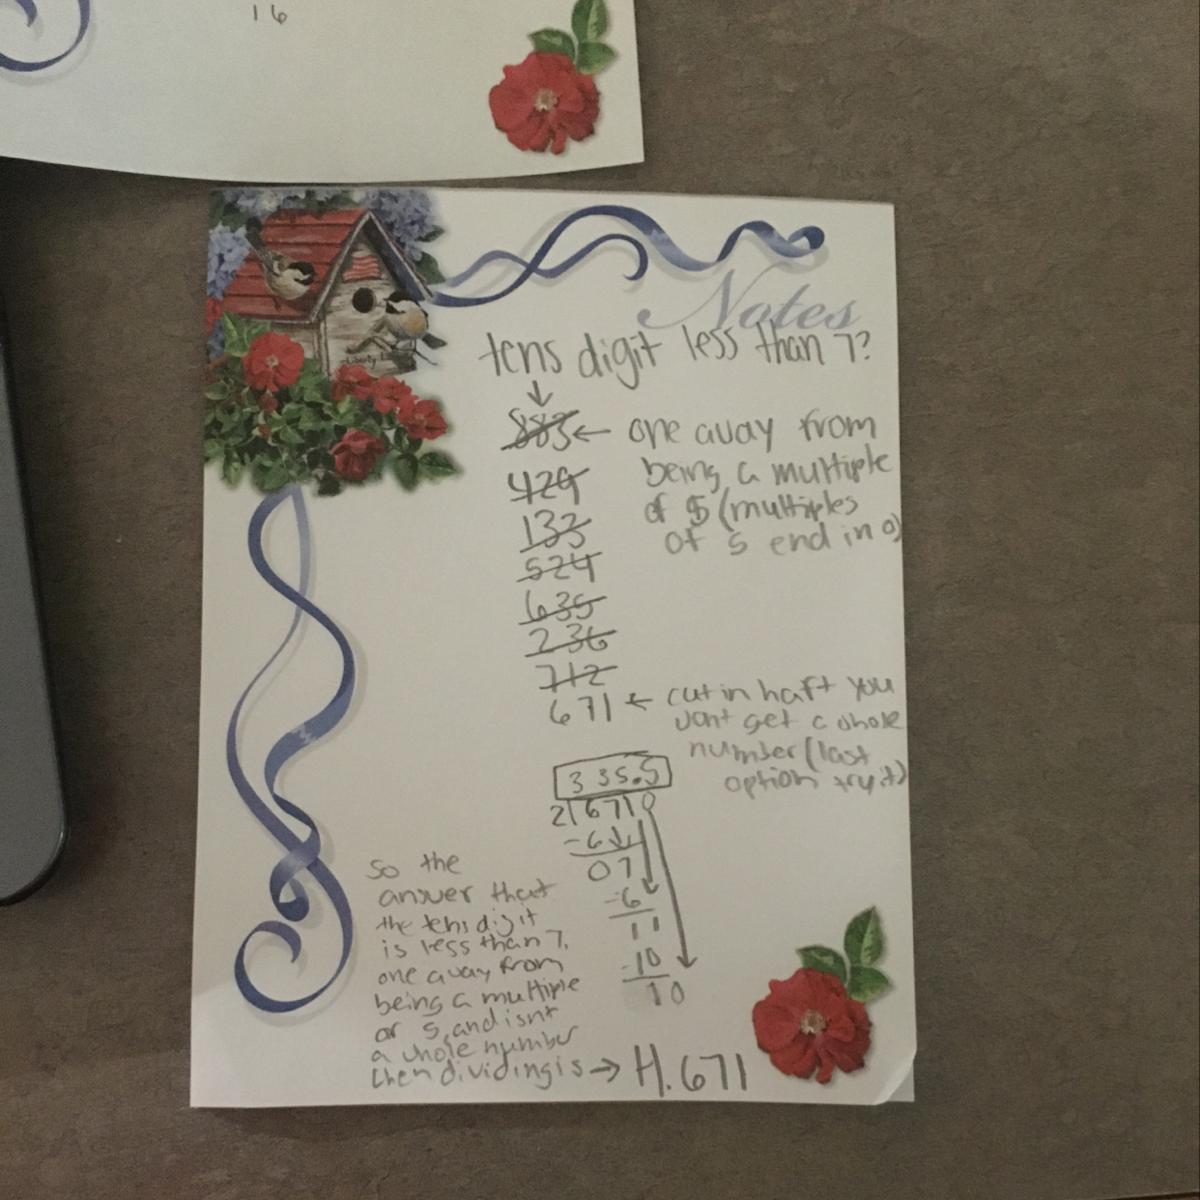 16
Notes
tens digit less than 7?
883 ← one away from
being a multiple
of 5 (multiples
of 5 end in 0)
429
133
524
635
236
712
671 ← cut in haft you
wont get a whole
number (last
option try it)
335.5
2 6710
-6
07
-6
11
-10
10
So the
answer that
the tens digit
is less than 7,
one away from
being a multiple
of 5, and isnt
a whole number
when dividing is → H. 671